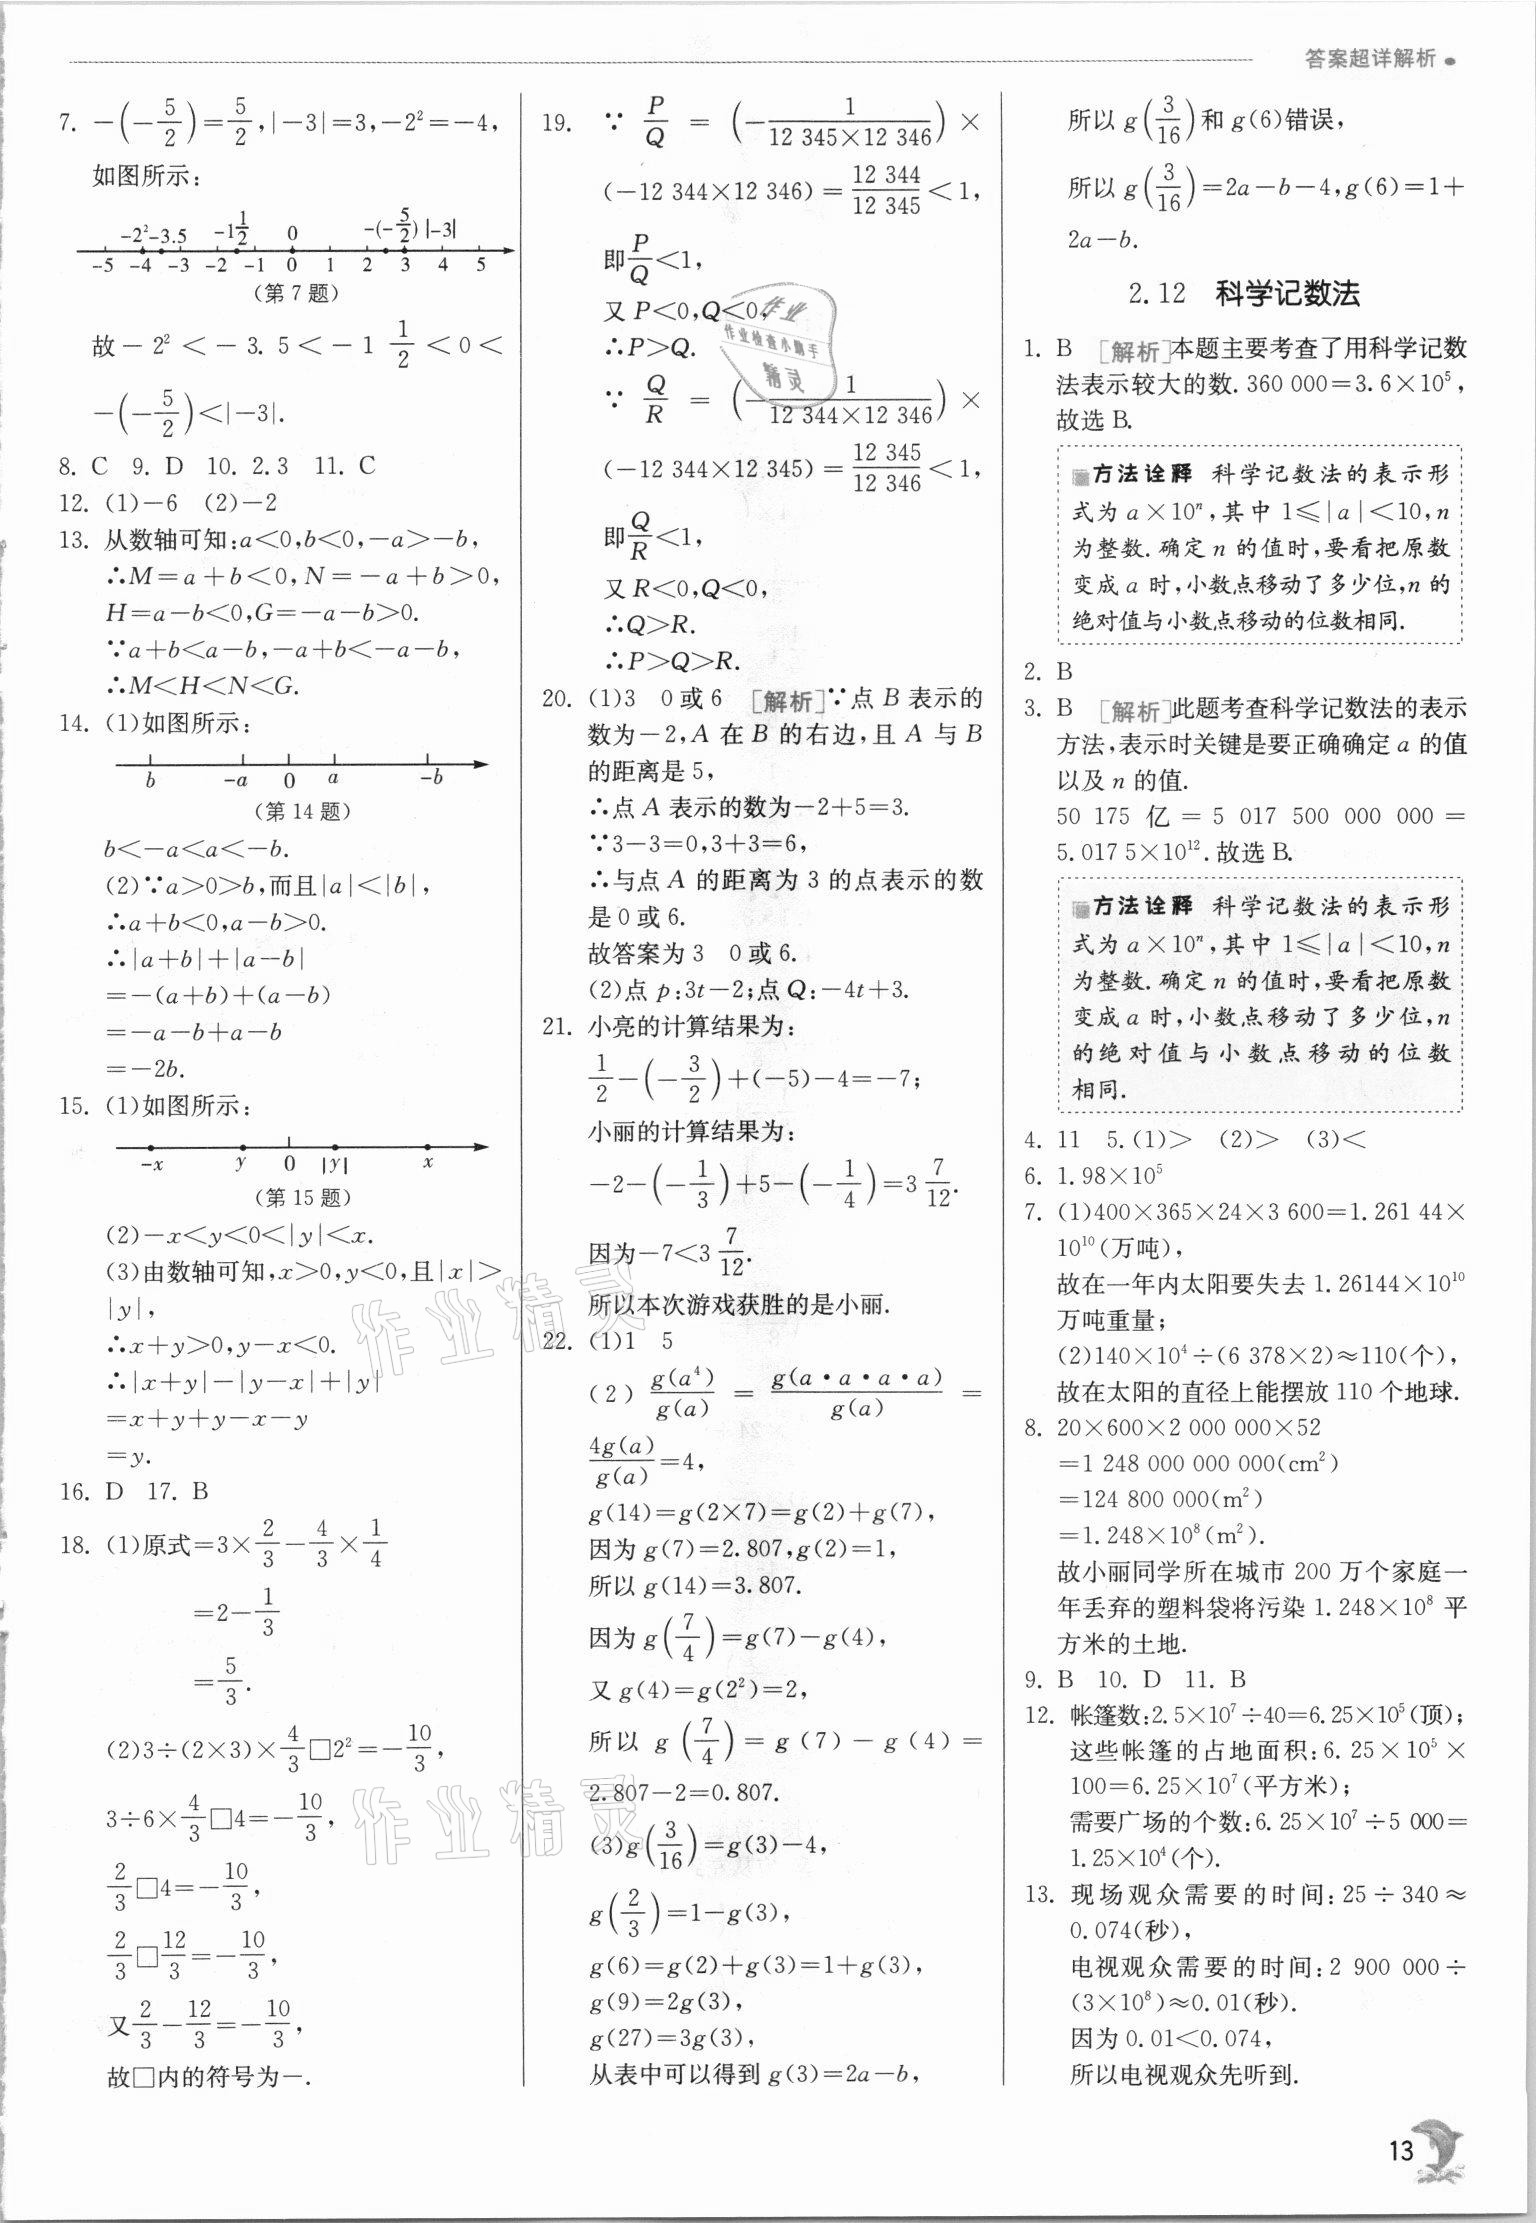 答案超详解析
7. −(−5/2)=5/2,|−3|=3,−2²=−4,
如图所示:
−2² −3.5 −1 1/2 0 −(−5/2) |−3|
−5 −4 −3 −2 −1 0 1 2 3 4 5
(第7题)
故−2²<−3.5<−1 1/2<0<
−(−5/2)<|−3|.
8. C 9. D 10. 2.3 11. C
12. (1)−6 (2)−2
13. 从数轴可知:a<0,b<0,−a>−b,
∴M=a+b<0,N=−a+b>0,
H=a−b<0,G=−a−b>0.
∵a+b<a−b,−a+b<−a−b,
∴M<H<N<G.
14. (1)如图所示:
b −a 0 a −b
(第14题)
b<−a<a<−b.
(2)∵a>0>b,而且|a|<|b|,
∴a+b<0,a−b>0.
∴|a+b|+|a−b|
=−(a+b)+(a−b)
=−a−b+a−b
=−2b.
15. (1)如图所示:
−x y 0 |y| x
(第15题)
(2)−x<y<0<|y|<x.
(3)由数轴可知,x>0,y<0,且|x|>
|y|,
∴x+y>0,y−x<0.
∴|x+y|−|y−x|+|y|
=x+y+y−x−y
=y.
16. D 17. B
18. (1)原式=3×2/3−4/3×1/4
=2−1/3
=5/3.
(2)3÷(2×3)×4/3□2²=−10/3,
3÷6×4/3□4=−10/3,
2/3□4=−10/3,
2/3□12/3=−10/3,
又2/3−12/3=−10/3,
故□内的符号为−.
19. ∵ P/Q = (−1/(12 345×12 346)) ×
(−12 344×12 346)=12 344/12 345<1,
即P/Q<1,
又P<0,Q<0,
∴P>Q.
∵ Q/R = (−1/(12 344×12 346)) ×
(−12 344×12 345)=12 345/12 346<1,
即Q/R<1,
又R<0,Q<0,
∴Q>R.
∴P>Q>R.
20. (1)3 0或6 [解析]∵点B表示的
数为−2,A在B的右边,且A与B
的距离是5,
∴点A表示的数为−2+5=3.
∵3−3=0,3+3=6,
∴与点A的距离为3的点表示的数
是0或6.
故答案为3 0或6.
(2)点p:3t−2;点Q:−4t+3.
21. 小亮的计算结果为:
1/2−(−3/2)+(−5)−4=−7;
小丽的计算结果为:
−2−(−1/3)+5−(−1/4)=3 7/12.
因为−7<3 7/12.
所以本次游戏获胜的是小丽.
22. (1)1 5
(2) g(a⁴)/g(a) = g(a·a·a·a)/g(a) =
4g(a)/g(a)=4,
g(14)=g(2×7)=g(2)+g(7),
因为g(7)=2.807,g(2)=1,
所以g(14)=3.807.
因为g(7/4)=g(7)−g(4),
又g(4)=g(2²)=2,
所以g(7/4)=g(7)−g(4)=
2.807−2=0.807.
(3)g(3/16)=g(3)−4,
g(2/3)=1−g(3),
g(6)=g(2)+g(3)=1+g(3),
g(9)=2g(3),
g(27)=3g(3),
从表中可以得到g(3)=2a−b,
所以g(3/16)和g(6)错误,
所以g(3/16)=2a−b−4,g(6)=1+
2a−b.
2.12 科学记数法
1. B [解析]本题主要考查了用科学记数
法表示较大的数.360 000=3.6×10⁵,
故选B.
方法诠释 科学记数法的表示形
式为a×10ⁿ,其中1≤|a|<10,n
为整数.确定n的值时,要看把原数
变成a时,小数点移动了多少位,n的
绝对值与小数点移动的位数相同.
2. B
3. B [解析]此题考查科学记数法的表示
方法,表示时关键是要正确确定a的值
以及n的值.
50 175亿=5 017 500 000 000=
5.017 5×10¹².故选B.
方法诠释 科学记数法的表示形
式为a×10ⁿ,其中1≤|a|<10,n
为整数.确定n的值时,要看把原数
变成a时,小数点移动了多少位,n
的绝对值与小数点移动的位数
相同.
4. 11 5.(1)> (2)> (3)<
6. 1.98×10⁵
7. (1)400×365×24×3 600=1.261 44×
10¹⁰(万吨),
故在一年内太阳要失去1.26144×10¹⁰
万吨重量;
(2)140×10⁴÷(6 378×2)≈110(个),
故在太阳的直径上能摆放110个地球.
8. 20×600×2 000 000×52
=1 248 000 000 000(cm²)
=124 800 000(m²)
=1.248×10⁸(m²).
故小丽同学所在城市200万个家庭一
年丢弃的塑料袋将污染1.248×10⁸平
方米的土地.
9. B 10. D 11. B
12. 帐篷数:2.5×10⁷÷40=6.25×10⁵(顶);
这些帐篷的占地面积:6.25×10⁵×
100=6.25×10⁷(平方米);
需要广场的个数:6.25×10⁷÷5 000=
1.25×10⁴(个).
13. 现场观众需要的时间:25÷340≈
0.074(秒),
电视观众需要的时间:2 900 000÷
(3×10⁸)≈0.01(秒).
因为0.01<0.074,
所以电视观众先听到.
13
作业
作业检查小助手
精灵
作业精灵
作业精灵